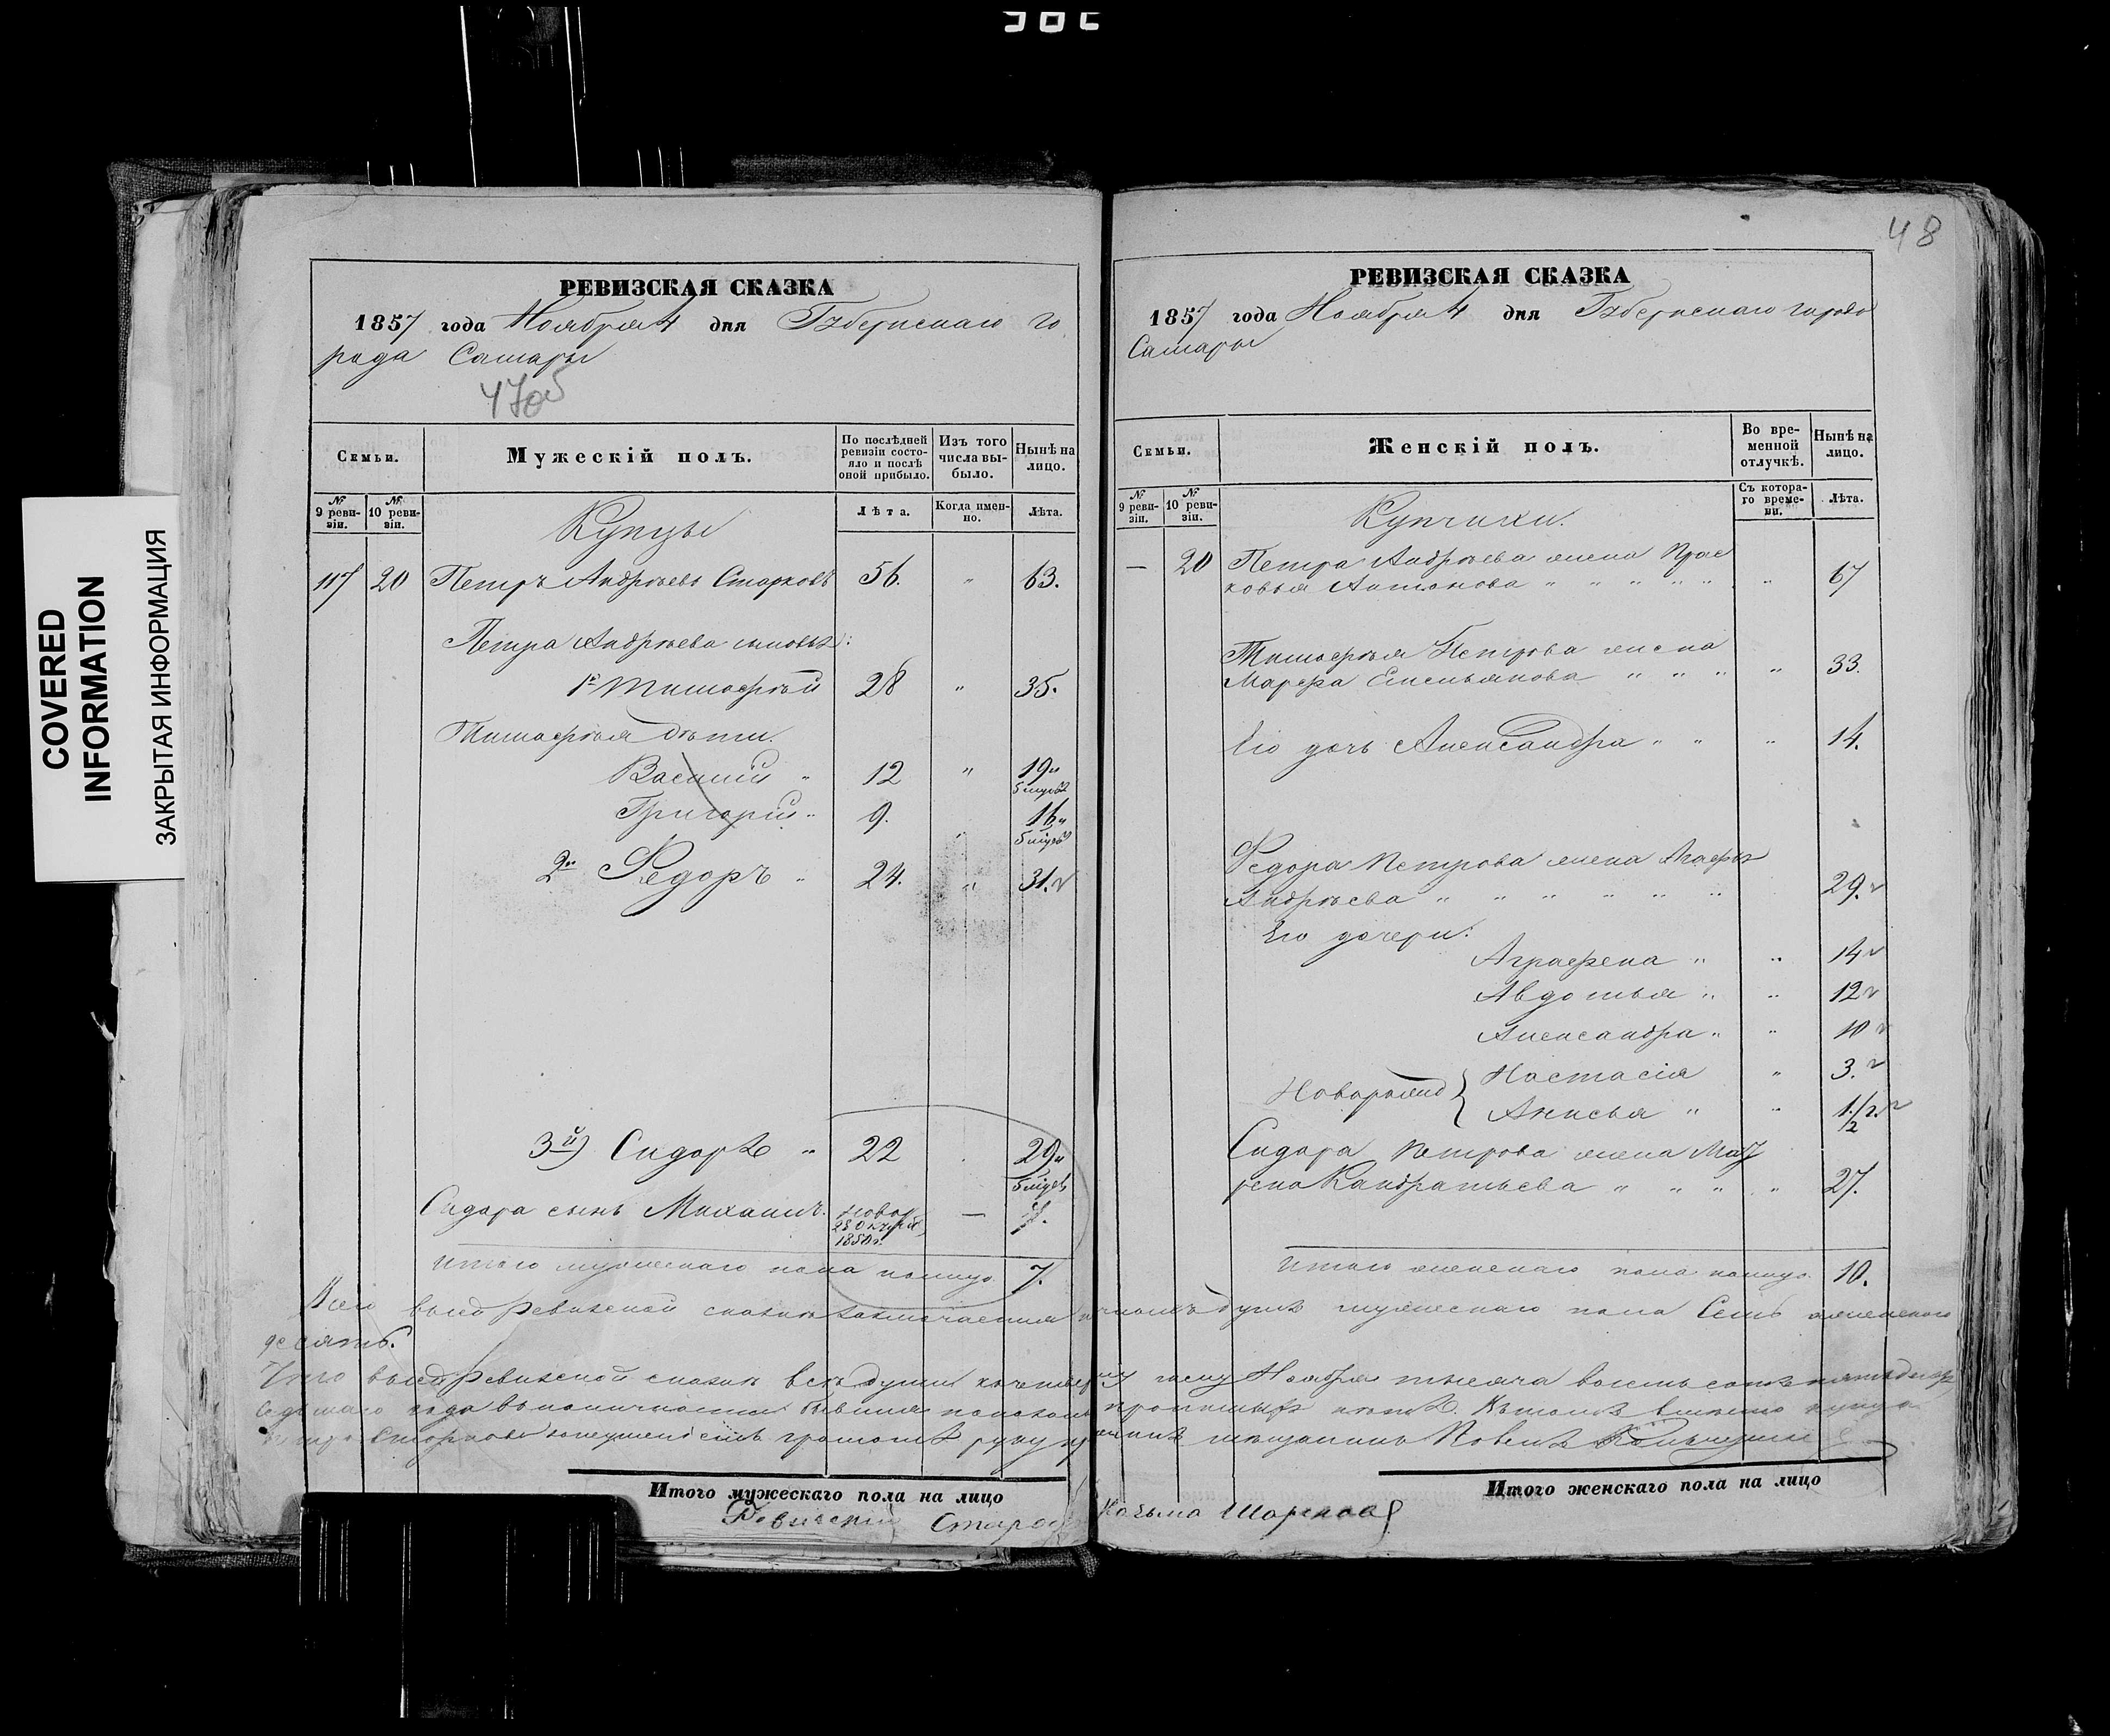 COVERED
INFORMATION
ЗАКРЫТАЯ ИНФОРМАЦИЯ
РЕВИЗСКАЯ СКАЗКА
1857 года Ноября 4 дня Губернскаго го
рода Самары
47об
Семьи.
Мужескій полъ.
По послѣдней ревизіи состо-
яло и послѣ
оной прибыло.
Изъ того
числа вы-
было.
Нынѣ на
лицо.
№ 9 реви-
зіи.
№ 10 реви-
зіи.
Лѣта.
Когда имен-
но.
Лѣта.
Купцы
117 20 Петръ Андрѣевъ Старковъ 56. " 63.
Петра Андрѣева сыновья:
1й Тимофѣй 28 " 35.
Тимофѣя дѣти.
Василій " 12 " 19
Григорій " 9. 16
2й Федоръ " 24. " 31.
3й) Сидоръ " 22 29
Сидора сынъ Михаилъ. новор. — 7.
Итого мужескаго пола налицо 7.
48
РЕВИЗСКАЯ СКАЗКА
1857 года Ноября 4 дня Губернскаго города
Самары
Семьи.
Женскій полъ.
Во вре-
менной
отлучкѣ.
Нынѣ на
лицо.
№ 9 реви-
зіи.
№ 10 реви-
зіи.
Съ котора-
го време-
ни.
Лѣта.
Купчихи.
— 20 Петра Андрѣева жена Прас
ковья Антонова " " " " " " 67
Тимофѣя Петрова жена
Марфа Емельянова " " " " 33.
Его дочь Александра " " " 14.
Федора Петрова жена Агафья
Андрѣева " " " " " " 29.
Его дочери:
Аграфена " " 14
Авдотья " " 12
Александра " " 10
Новорожд { Настасія " 3.
Анисья " " 1 1/2
Сидора Петрова жена Мат
рена Кандратьева " " " " 27.
Итого женскаго пола налицо 10.
Всего въ сей Ревизской сказкѣ заключается душъ мужескаго пола Семь женскаго
десять.
Что въ сей Ревизской сказкѣ всѣ души къ четвертому числу Ноября тысяча восемь сотъ пятьдесятъ
седьмаго года
мѣщанинъ Павелъ
Итого мужескаго пола на лицо
Итого женскаго пола на лицо
Ревизскій Староста Козьма